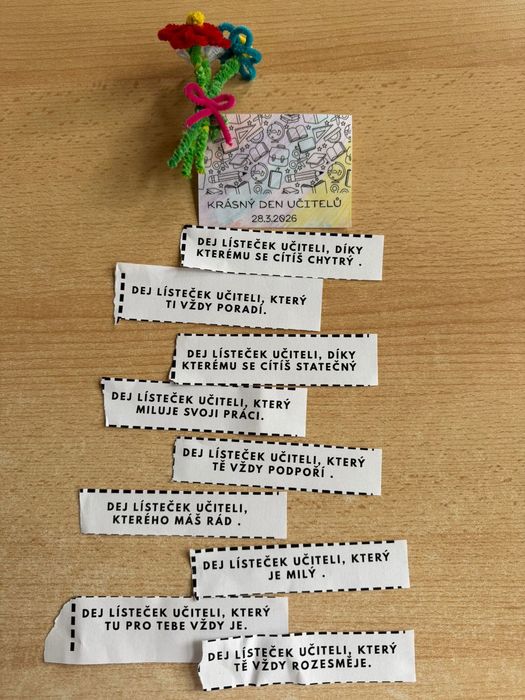 KRÁSNÝ DEN UČITELŮ
28.3.2026
DEJ LÍSTEČEK UČITELI, DÍKY
KTERÉMU SE CÍTÍŠ CHYTRÝ .
DEJ LÍSTEČEK UČITELI, KTERÝ
TI VŽDY PORADÍ.
DEJ LÍSTEČEK UČITELI, DÍKY
KTERÉMU SE CÍTÍŠ STATEČNÝ
DEJ LÍSTEČEK UČITELI, KTERÝ
MILUJE SVOJI PRÁCI.
DEJ LÍSTEČEK UČITELI, KTERÝ
TĚ VŽDY PODPOŘÍ .
DEJ LÍSTEČEK UČITELI,
KTERÉHO MÁŠ RÁD .
DEJ LÍSTEČEK UČITELI, KTERÝ
JE MILÝ .
DEJ LÍSTEČEK UČITELI, KTERÝ
TU PRO TEBE VŽDY JE.
DEJ LÍSTEČEK UČITELI, KTERÝ
TĚ VŽDY ROZESMĚJE.